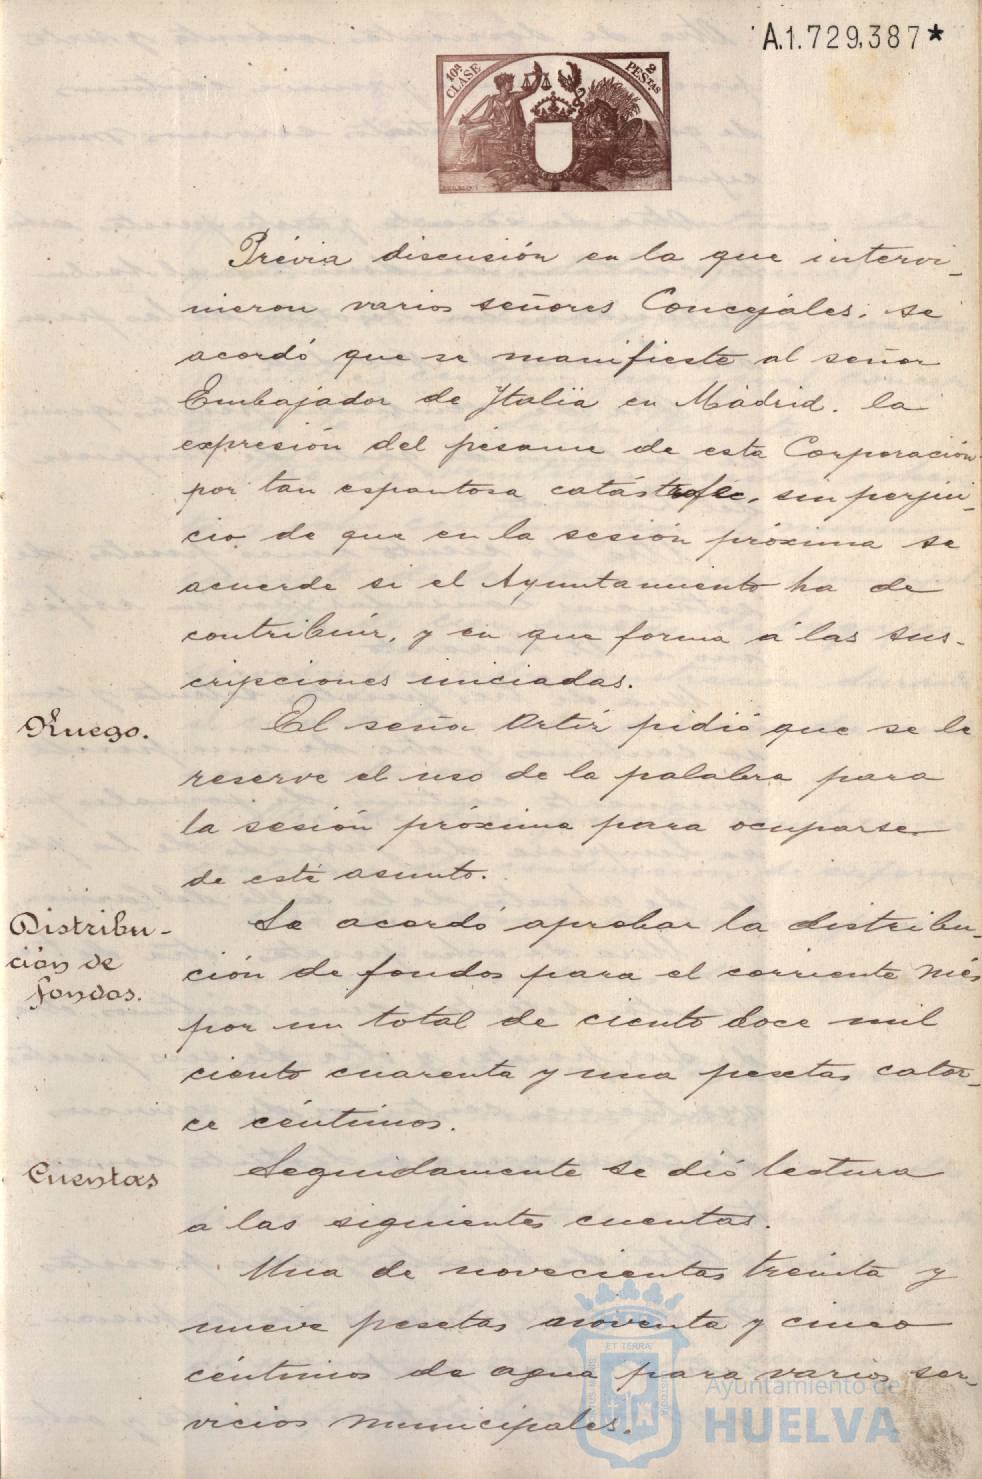 A.1.729,387*
10ª CLASE
2 PESTAS
Prévia discusión en la que intervi-
nieron varios señores Concejales, se
acordó que se manifieste al señor
Embajador de Italia en Madrid, la
expresión del pésame de esta Corporación
por tan espantosa catástrofe, sin perjui-
cio de que en la sesión próxima se
acuerde si el Ayuntamiento ha de
contribuir, y en que forma á las sus-
cripciones iniciadas.
Ruego.
El señor Ortiz pidió que se le
reserve el uso de la palabra para
la sesión próxima para ocuparse
de este asunto.
Distribu-
ción de
fondos.
Se acordó aprobar la distribu-
ción de fondos para el corriente més
por un total de ciento doce mil
ciento cuarenta y una pesetas cator-
ce céntimos.
Cuentas
Seguidamente se dió lectura
á las siguientes cuentas.
Una de novecientas treinta y
nueve pesetas noventa y cinco
céntimos de agua para varios ser-
vicios municipales.
ET TERRÆ
Ayuntamiento de
HUELVA